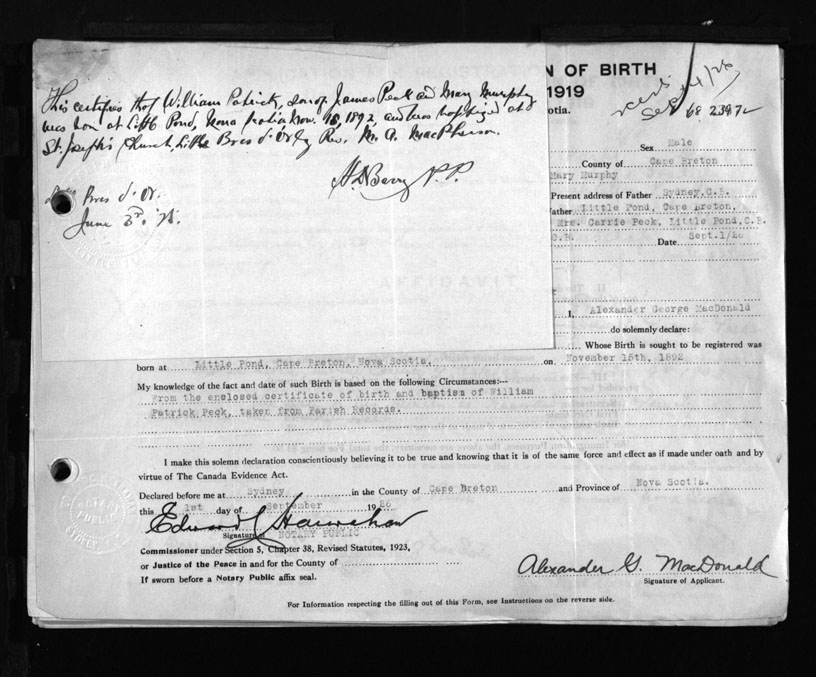 This certifies that William Patrick, son of James Peck and Mary Murphy
was born at Little Pond, Nova Scotia Nov. 15, 1892, and was baptized at
St. Joseph's Church, Little Bras d'Or by Rev. M. A. MacPherson.
P.P.
Bras d'Or.
June 3rd
N OF BIRTH
1919
otia.
Sept 1/26
68 2397
Sex Male
County of Cape Breton
Mary Murphy
Present address of Father Sydney, C.B.
ather Little Pond, Cape Breton,
Mrs. Carrie Peck, Little Pond, C.B.
C.B. Date Sept.1/26
I, Alexander George MacDonald
do solemnly declare:
Whose Birth is sought to be registered was
born at Little Pond, Cape Breton, Nova Scotia, on November 15th, 1892
My knowledge of the fact and date of such Birth is based on the following Circumstances:—
From the enclosed certificate of birth and baptism of William
Patrick Peck, taken from Parish Records.
I make this solemn declaration conscientiously believing it to be true and knowing that it is of the same force and effect as if made under oath and by
virtue of The Canada Evidence Act.
Declared before me at Sydney in the County of Cape Breton and Province of Nova Scotia.
this 1st day of September 1926
Signature of NOTARY PUBLIC
Commissioner under Section 5, Chapter 38, Revised Statutes, 1923,
or Justice of the Peace in and for the County of
If sworn before a Notary Public affix seal.
Alexander G. MacDonald
Signature of Applicant.
For Information respecting the filling out of this Form, see Instructions on the reverse side.